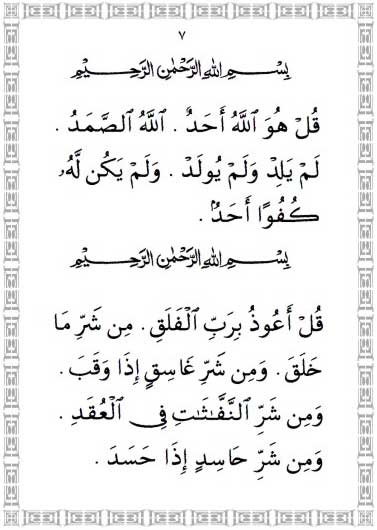 ٧
بِسْمِ اللهِ الرَّحْمٰنِ الرَّحِيْمِ
قُلْ هُوَ ٱللَّهُ أَحَدٌ . ٱللَّهُ ٱلصَّمَدُ .
لَمْ يَلِدْ وَلَمْ يُولَدْ . وَلَمْ يَكُن لَّهُۥ
كُفُوًا أَحَدٌۢ .
بِسْمِ اللهِ الرَّحْمٰنِ الرَّحِيْمِ
قُلْ أَعُوذُ بِرَبِّ ٱلْفَلَقِ . مِن شَرِّ مَا
خَلَقَ . وَمِن شَرِّ غَاسِقٍ إِذَا وَقَبَ .
وَمِن شَرِّ ٱلنَّفَّـٰثَـٰتِ فِى ٱلْعُقَدِ .
وَمِن شَرِّ حَاسِدٍ إِذَا حَسَدَ .